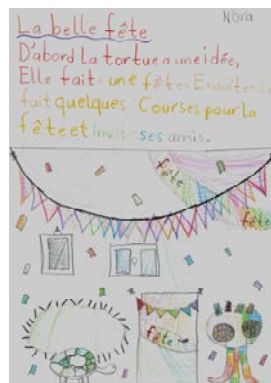 Nora
La belle fête
D'abord La tortue a une idée,
Elle fait une fête. Ensuite elle
fait quelques Courses pour la
fête et invite ses amis.
fête
fête
fête